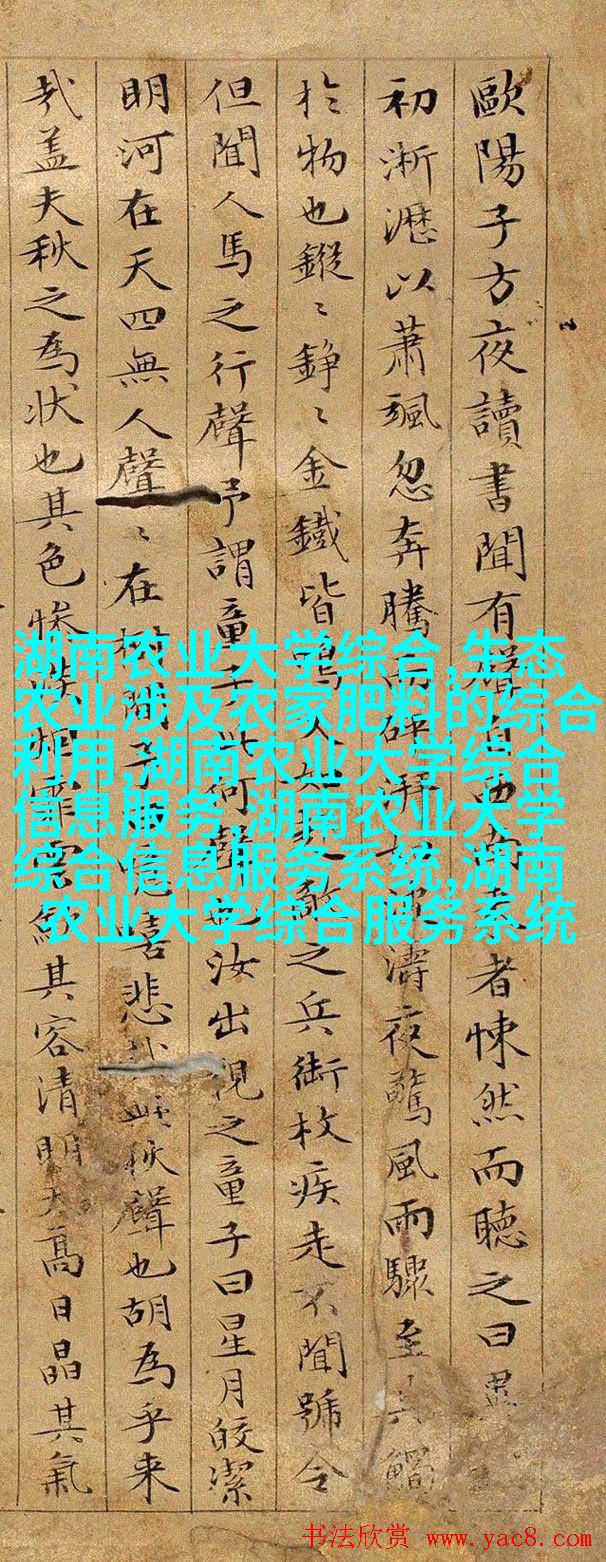 歐陽子方夜讀書聞有聲自西南來者悚然而聽之曰異
初淅瀝以蕭颯忽奔騰而砰湃濤夜驚風雨驟至其觸
於物也鏦〻錚〻金鐵皆鳴又如敵之兵銜枚疾走不聞號令
但聞人馬之行聲予謂童子此何聲也汝出視之童子曰星月皎潔
明河在天四無人聲〻在樹間予嘻悲秋聲也胡為乎來
㢤盖夫秋之為狀也其色慘煙霏雲斂其容清明天高日晶其氣
湖南农业大学综合,生态
农业涉及农家肥料的综合
利用,湖南农业大学综合
信息服务,湖南农业大学
综合信息服务系统,湖南
农业大学综合服务系统
书法欣赏 www.yac8.com